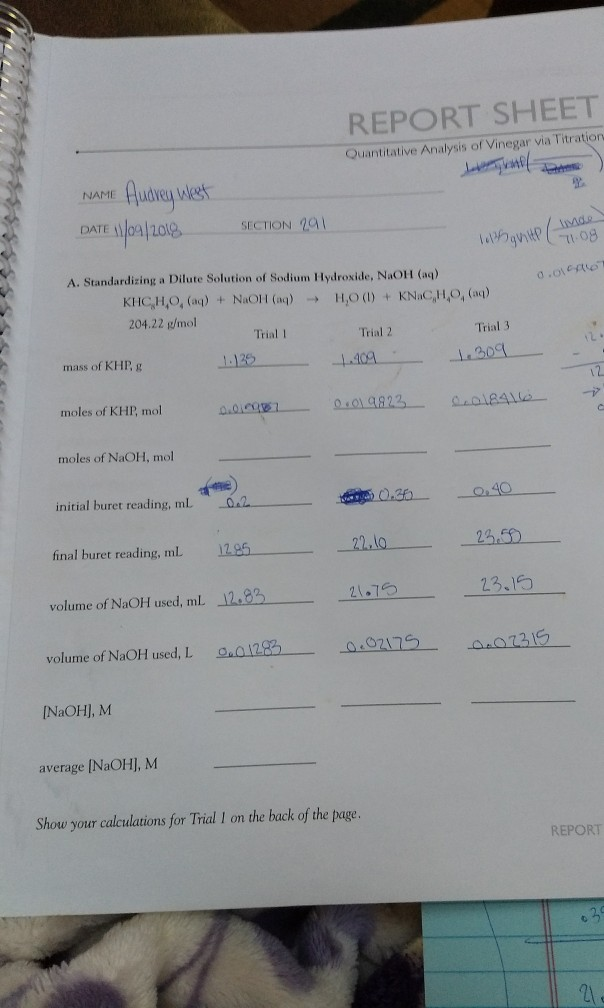 REPORT SHEET
Quantitative Analysis of Vinegar via Titration
NAME Audrey West
DATE 11/09/2018 SECTION 291
1.135gKHP ( 1mole
71.08 )
A. Standardizing a Dilute Solution of Sodium Hydroxide, NaOH (aq)
KHC₈H₄O₄ (aq) + NaOH (aq) → H₂O (l) + KNaC₈H₄O₄ (aq)
204.22 g/mol
Trial 1 Trial 2 Trial 3
mass of KHP, g 1.135 1.409 1.309
moles of KHP, mol 0.019823 0.018416
moles of NaOH, mol
initial buret reading, mL 0.2 0.35 0.40
final buret reading, mL 12.85 22.10 23.55
volume of NaOH used, mL 12.83 21.75 23.15
volume of NaOH used, L 0.01283 0.02175 0.02315
[NaOH], M
average [NaOH], M
Show your calculations for Trial 1 on the back of the page.
REPORT
21.